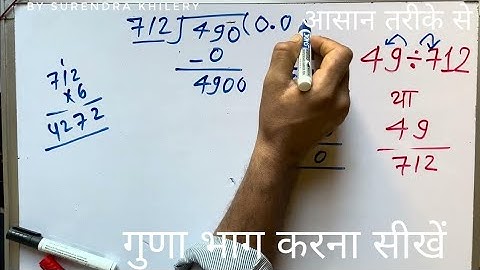 BY SURENDRA KHILERY
आसान तरीके से
712 ) 490 ( 0.0
- 0
4900
0
712
×6
4272
49 ÷ 712
या
49
712
गुणा भाग करना सीखें